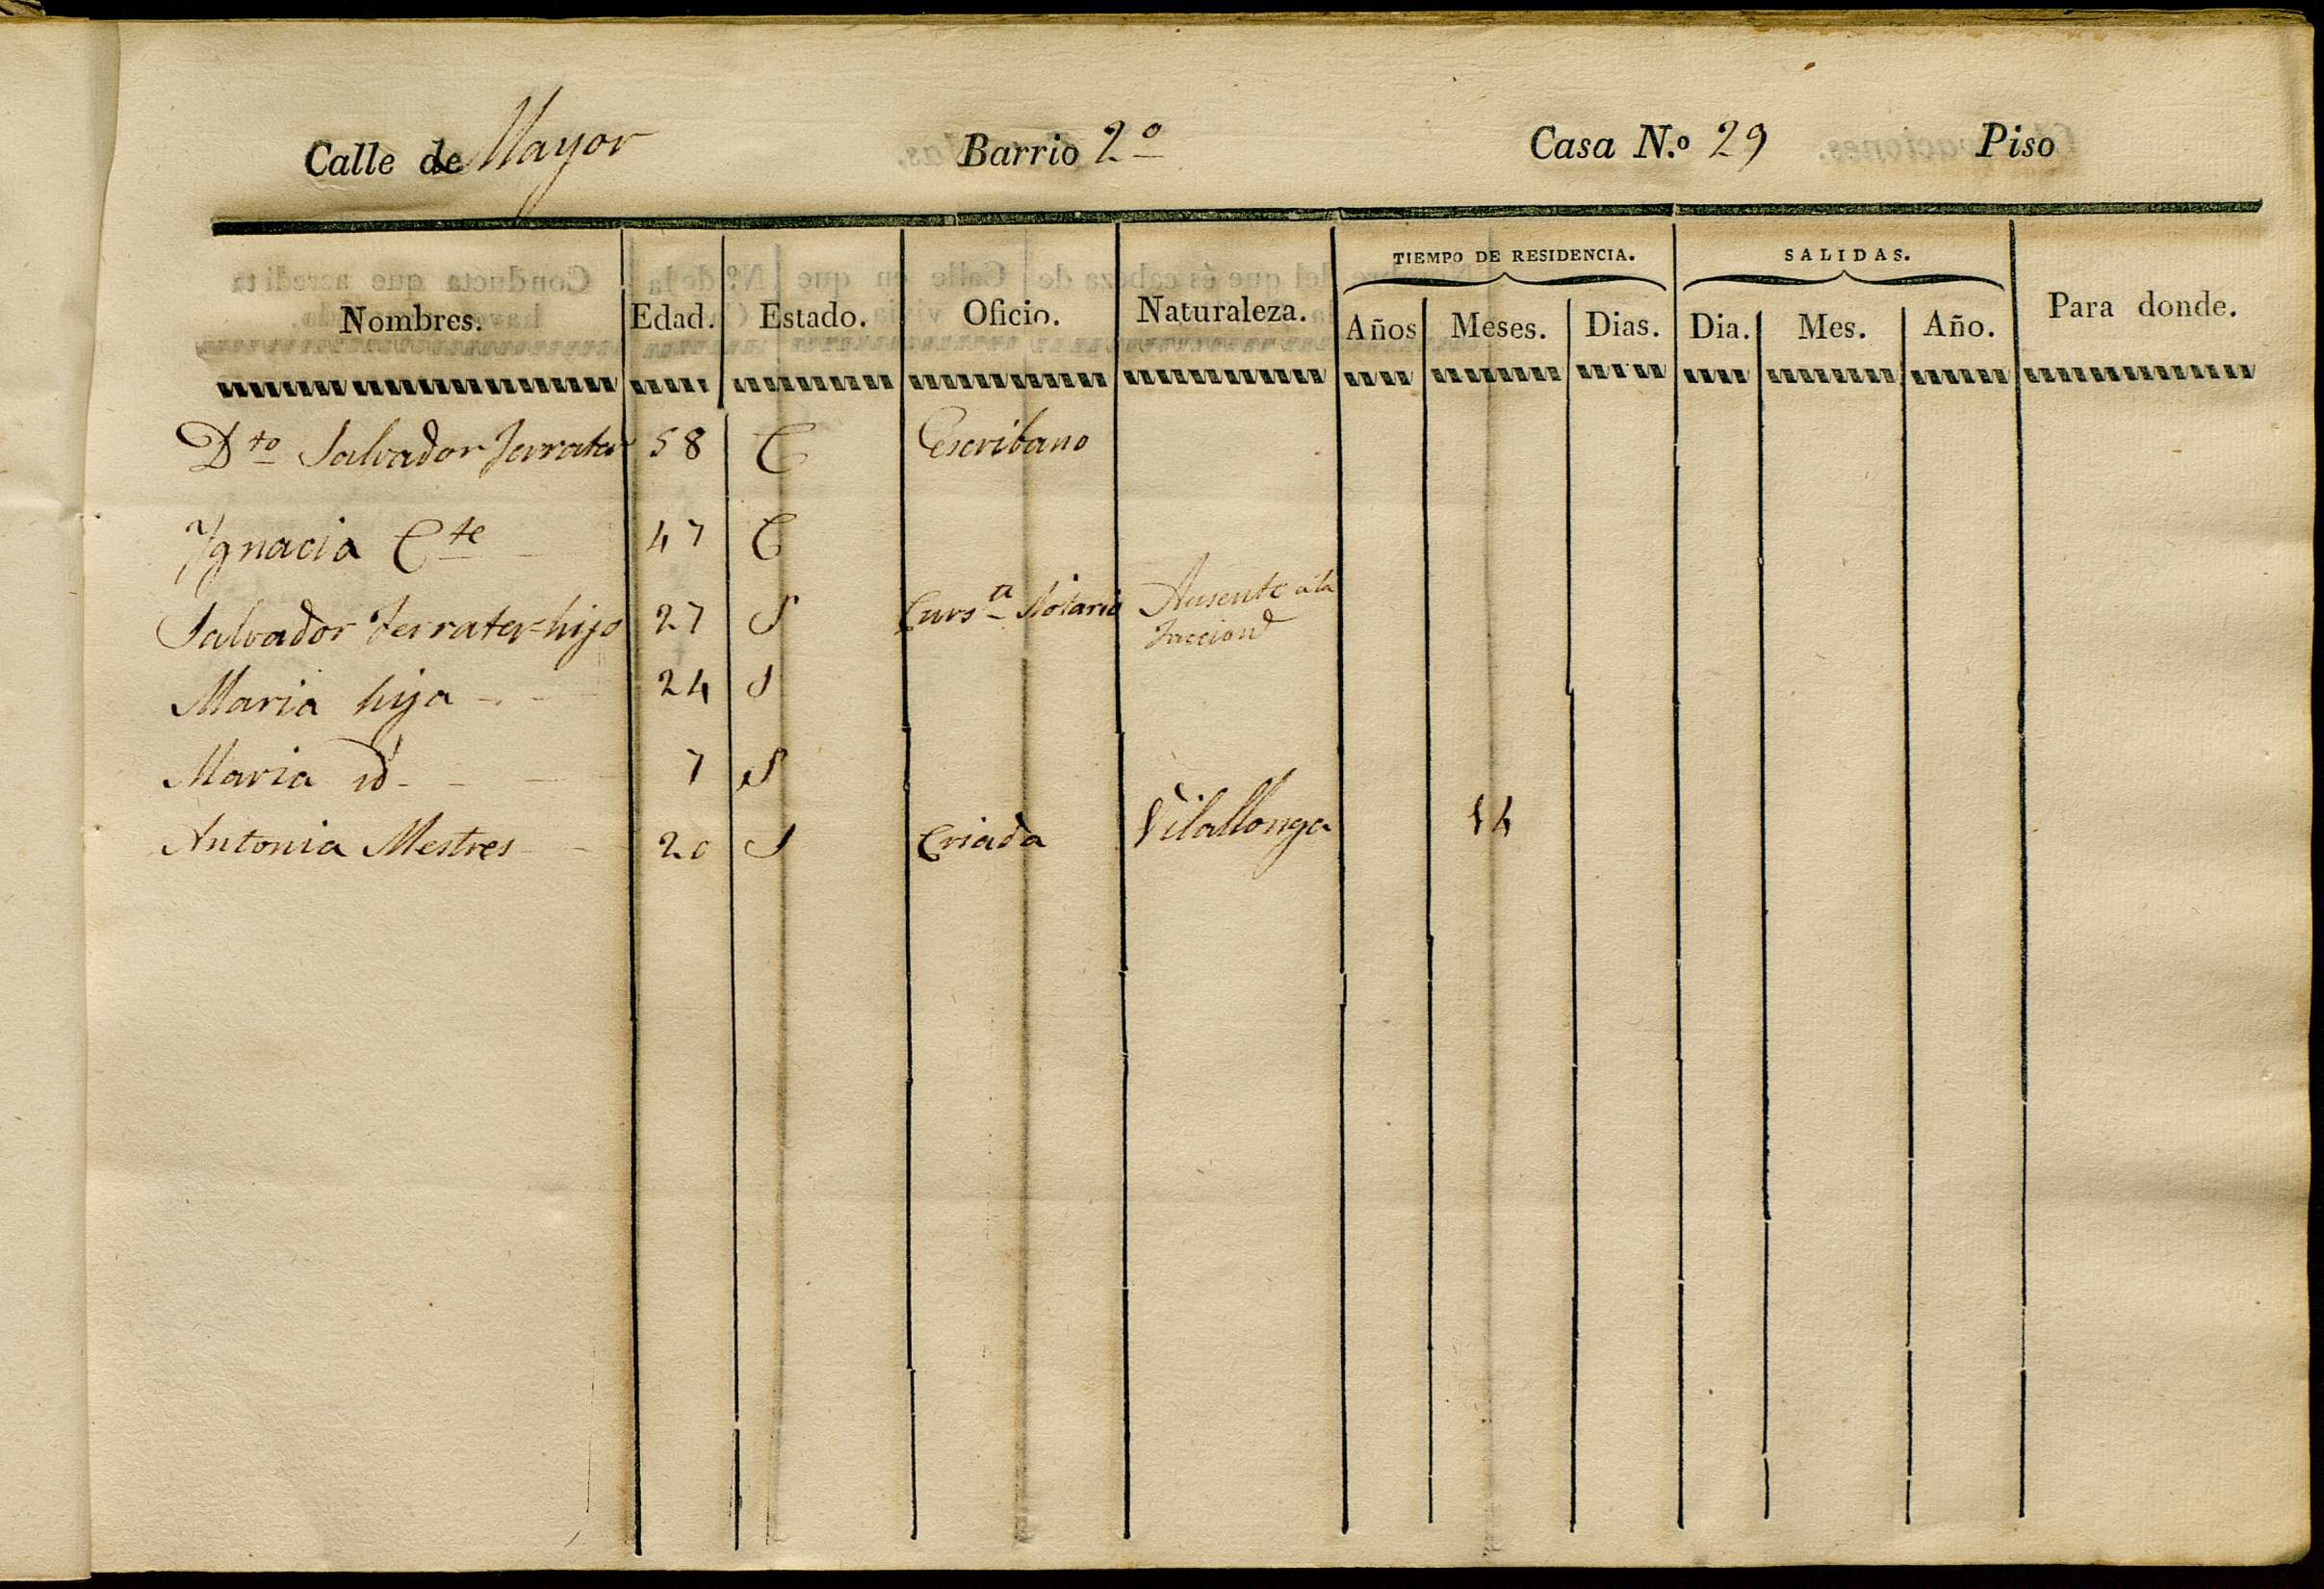 Calle de Mayor Barrio 2º Casa N.º 29 Piso
TIEMPO DE RESIDENCIA. SALIDAS.
Nombres. Edad. Estado. Oficio. Naturaleza. Años Meses. Dias. Dia. Mes. Año. Para donde.
Dto Salvador Ferrater 58 C Escribano
Ygnacia Cte 47 C
Salvador Ferrater hijo 27 S Cursta Notario Ausente á la
faccion
Maria hija 24 S
Maria id 7 S
Antonia Mestres 20 S Criada Vilallonga 14